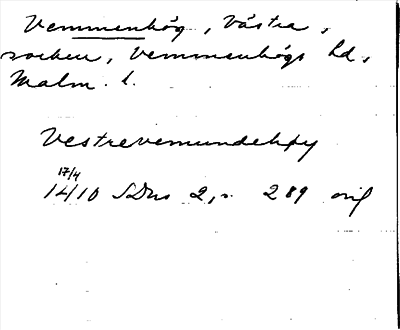 Vemmenhög, Västra,
socken, Vemmenhögs hd,
Malm. l.
Vestrevemundehøy
17/4
1410 SDns 2, s. 289 orig